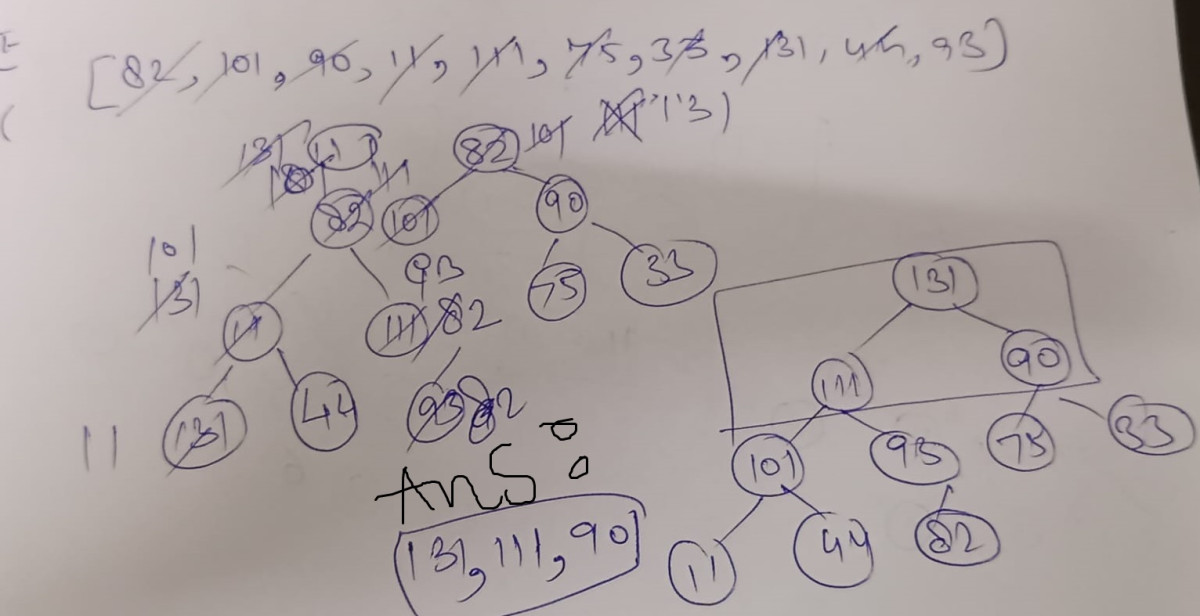 [82, 101, 90, 11, 111, 75, 33, 131, 44, 93]
131 111 82 101 131
111
82 101 90
101
131 93 75 33
11 111 82
131
11 131 44 93 82
111 90
Ans:
101 93 75 33
131, 111, 90
11 44 82